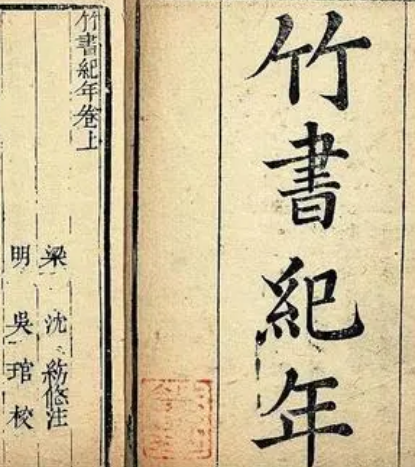 竹書紀年
竹書紀年卷上
梁 沈 注
明 吳 琯 校